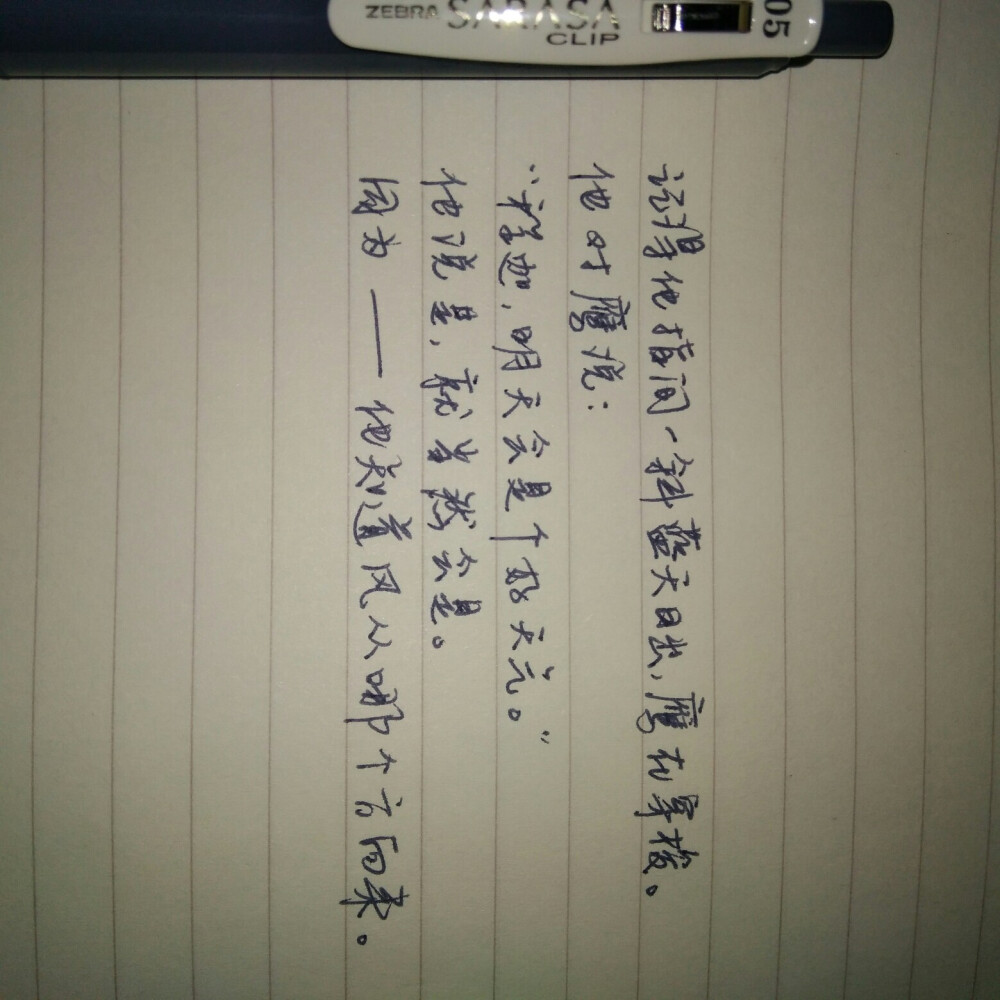 ZEBRA SARASA
CLIP
05
记得他指间一斜蓝天日出，鹰在穿梭。
他对鹰说：
“程迦，明天会是个好天气。”
他说是，就当然会是。
因为——他知道风从哪个方向来。